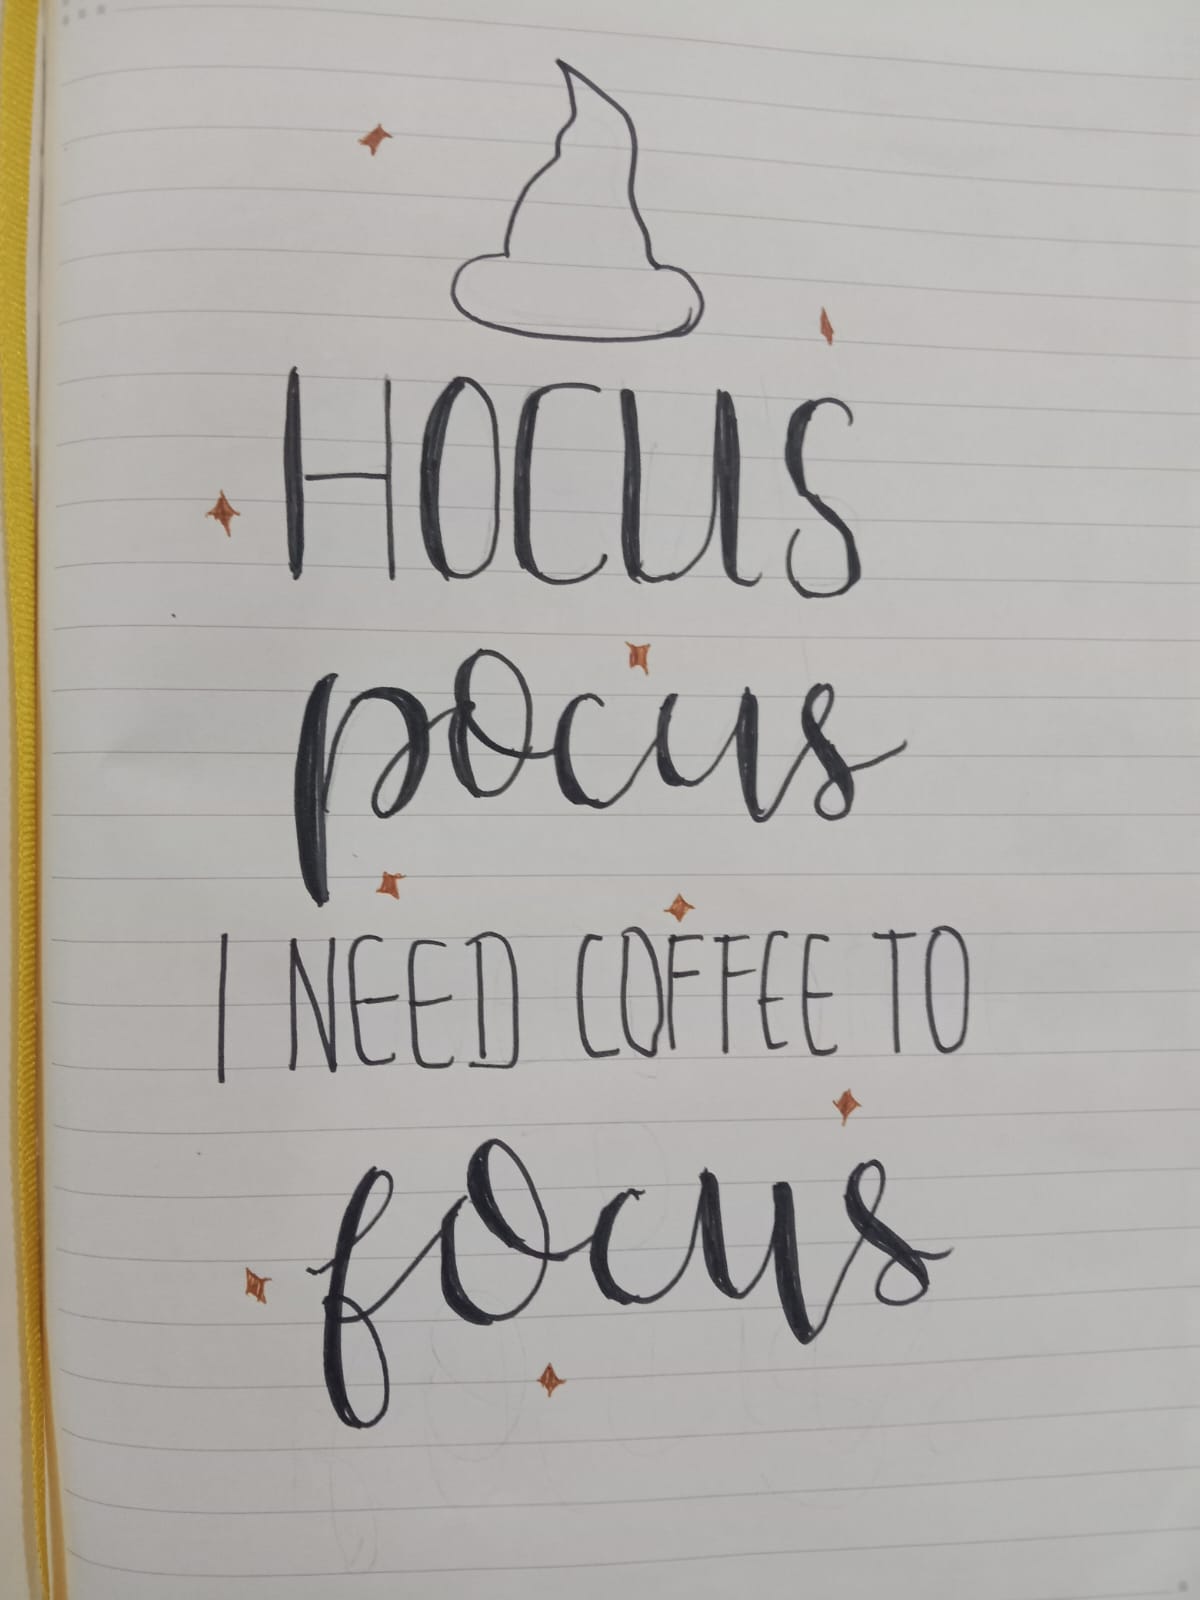 HOCUS
pocus
I NEED COFFEE TO
focus